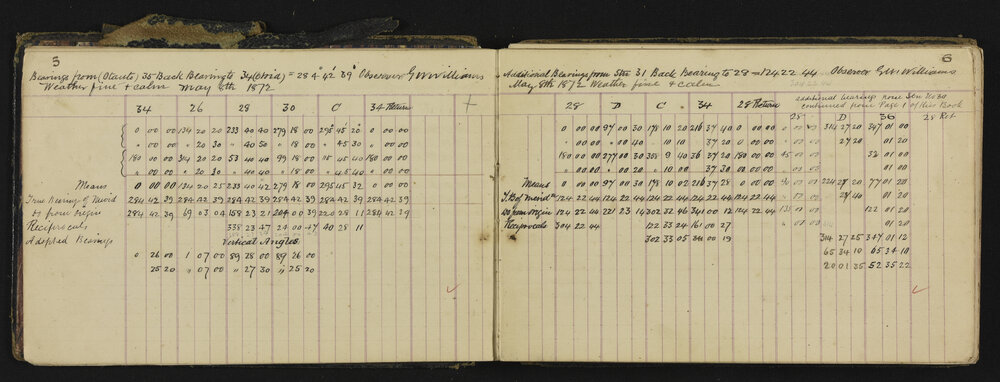 5
Bearings from (Otaute) 35 Back Bearing to 34 (Oroid) = 284° 42' 39" Observer G W Williams
Weather fine & calm May 8th 1872
34 26 28 30 C 34 Return
0 00 00 134 20 20 233 40 40 279 18 00 295 45 20 0 00 00
" 00 00 " 20 30 " 40 50 " 18 00 " 45 30 " 00 00
180 00 00 314 20 20 53 40 40 99 18 00 115 45 40 180 00 00
" 00 00 " 20 30 " 40 40 " 18 00 " 45 40 " 00 00
Means 0 00 00 134 20 25 233 40 42 279 18 00 295 45 32 0 00 00
True Bearing of Merid 284 42 39 284 42 39 284 42 39 284 42 39 284 42 39 284 42 39
Do from origin 284 42 39 69 03 04 158 23 21 204 00 39 220 28 11 284 42 39
Reciprocals 338 23 47 24 00 47 40 28 11
Adopted Bearings
Vertical Angles
0 26 00 1 07 00 89 28 00 89 26 00
25 20 " 07 00 " 27 30 " 25 20
6
Additional Bearings from Stn 31 Back Bearing to 28 = 124 22 44 Observer G W Williams
May 8th 1872 Weather fine & calm
additional bearings from Stn No 30
continued from Page 1 of this Book
28 D C 34 28 Return 28 D 36 28 Ret
0 00 00 97 00 30 178 10 20 216 37 40 0 00 00 " 00 00 314 27 20 347 01 20
" 00 00 " 00 40 " 10 10 " 37 20 " 00 00 27 20 01 20
180 00 00 277 00 30 358 9 40 36 37 20 180 00 00 45 00 00 32 01 00
" 00 00 " 00 20 " 10 00 " 37 30 " 00 00 " 00 00 01 20
Means 0 00 00 97 00 30 178 10 02 216 37 28 0 00 00 90 00 00 224 27 20 77 01 20
T. B of Merid 124 22 44 124 22 44 124 22 44 124 22 44 124 22 44 01 20
Do from origin 124 22 44 221 23 14 302 32 46 341 00 12 124 22 44 135 00 00 122 01 20
Reciprocals 304 22 44 122 33 24 161 00 27 " 00 00 01 20
302 33 05 341 00 19 314 27 25 347 01 12
65 34 10 65 34 10
20 01 35 52 35 22